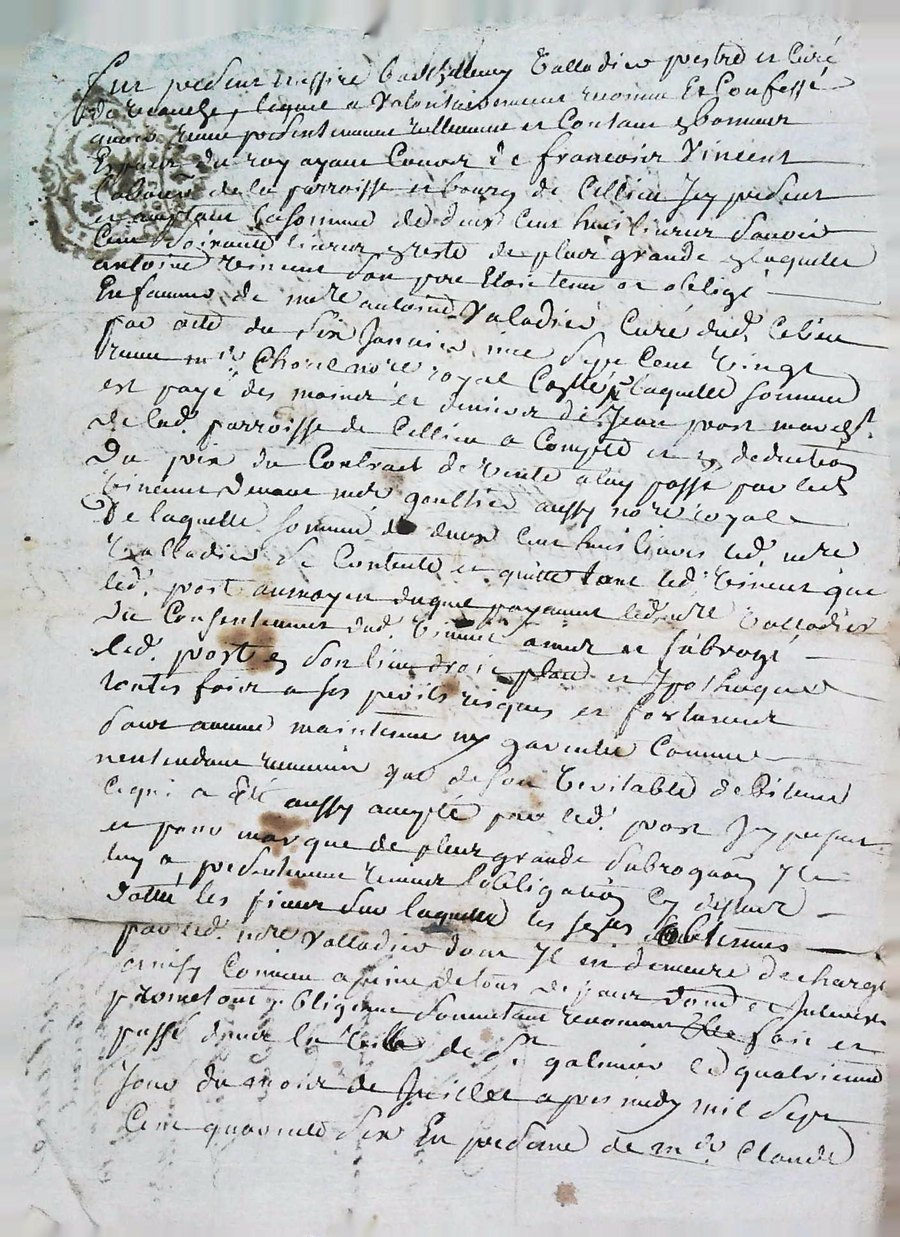 fut présent messire Barthellemy Valladier prestre et curé
de lequel a volontairement reconnu et confessé
avoir reçeu présentement réellement et contant en bonnes
espèces du roy ayant cours de françois Vincent
de la parroisse et bourg de Cellieu icy présent
et acceptant la somme de deux cent huit livres sçavoir
cent soixante livres en reste de plus grande en laquelle
antoine Vincent son père étoit tenu et obligé
En faveur de mre antoine Valladier Curé dud. Celieu
par acte du six Janvier mil sept cent vingt
reçeu me Chorel nore royal laquelle somme
est payé des mains et deniers de Jean post
de lad. parroisse de Cellieu a Compte et en deduction
Du prix du Contract de vente a luy passé par led.
Vincent devant me gaultier aussy nore royal
De laquelle somme de deux cent huit livres led. mre
Valladier se contente et quitte tant led. Vincent que
led. post au moyen duquel payement led. mre Valladier
du Consentement dud. Vincent a mis et subrogé
led. post en son lieu droit place et Ypothèque
toutes fois a ses perils risques et fortunes
sans aucune maintenue ny garentie Comme
n'entendant recevoir que de son véritable débiteur
ce qui a été aussy accepté par led. post icy présent
et pour marque de plus grande subrogaon Il
luy a présentement remis l'obligaon cy dessus
dattée les pièces sur laquelle les obtenus
par led. mre Valladier dont Il en demeure déchargé
ainsy Convenu a peine de tous dépens dom. et Interests
promettant obligeant soumettant renonçant fait et
passé dans la ville de St galmier le quatrieme
jour du mois de Juillet apres midy mil sept
Cent quarante six En présence de me Claude